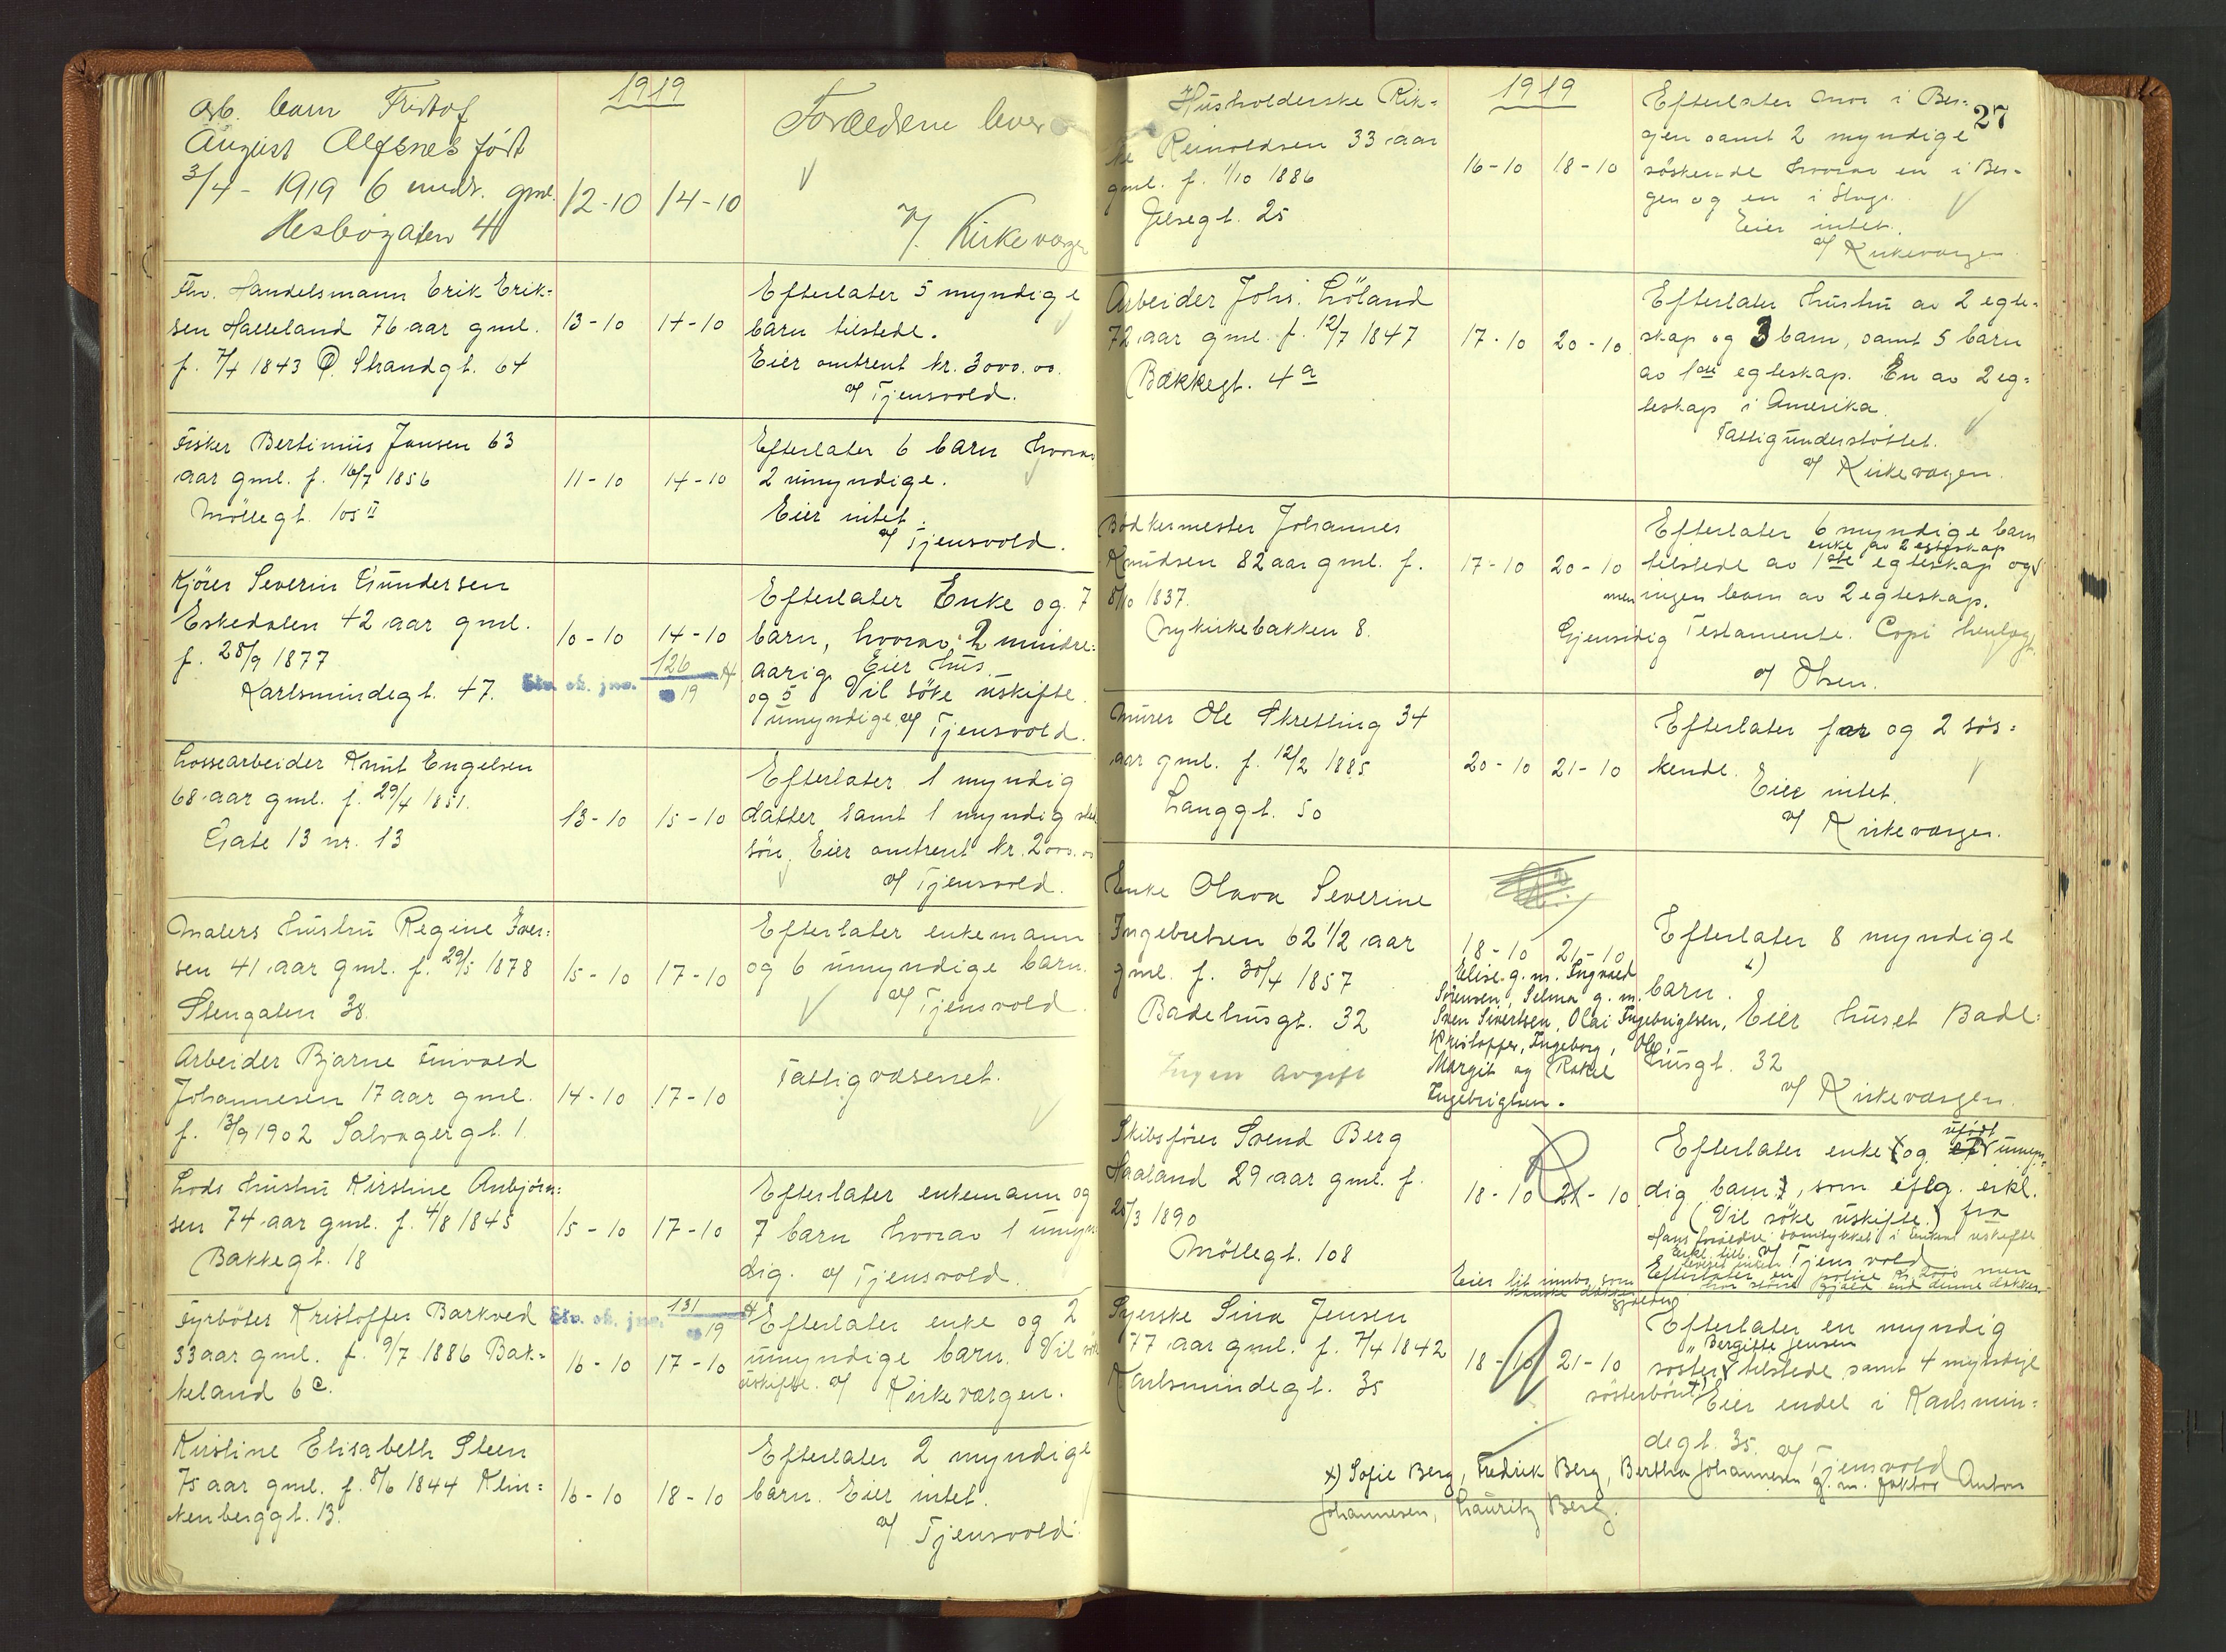 1919
arb. barn Fridtof
August Alfsnes født
3/4 - 1919 6 mdr. gml.
Hesbygaten 4
12-10 14-10
Forældrene lever
v/ Kirkeværgen
Fhv. Handelsmann Erik Erik=
sen Halleland 76 aar gml.
f. 7/4 1843 Ø. Strandgt. 64
13-10 14-10
Efterlater 5 myndige
barn tilstede.
Eier omtrent kr. 3000.00.
v/ Tjensvold.
Fisker Bertinius Jansen 63
aar gml. f. 16/7 1856
Möllegt. 105 II
11-10 14-10
Efterlater 6 barn hvorav
2 umyndige.
Eier intet.
v/ Tjensvold.
Kjörer Severin Gundersen
Eskedalen 42 aar gml.
f. 28/9 1877
Karlsmindegt. 47.
10-10 14-10
126
19
Efterlater Enke og 7
barn, hvorav 2 mindre=
aarig Eier hus.
og 5 Vil söke uskifte.
umyndige v/ Tjensvold.
Lossearbeider Knut Engelsen
68 aar gml. f. 29/4 1851.
Gate 13 nr. 13
13-10 15-10
Efterlater 1 myndig
datter samt 1 myndig
sön. Eier omtrent kr. 2000.00
v/ Tjensvold.
Malers hustru Regine Iver=
sen 41 aar gml. f. 29/5 1878
Stengaten 38.
15-10 17-10
Efterlater enkemann
og 6 umyndige barn.
v/ Tjensvold
Arbeider Bjarne
Johannesen 17 aar gml.
f. 13/9 1902 Salvagergt. 1.
14-10 17-10
Fattigvæsenet.
Lods hustru Kirstine Anbjörn=
sen 74 aar gml. f. 4/8 1845
Bakkegt. 18
15-10 17-10
Efterlater enkemann og
7 barn hvorav 1 umyn=
dig. v/ Tjensvold.
Fyrböter Kristoffer Barkved
33 aar gml. f. 9/7 1886 Bak=
keland 6c.
131
19
16-10 17-10
Efterlater enke og 2
umyndige barn. Vil söke
uskifte. v/ Kirkeværgen.
Kirstine Elisabeth Steen
75 aar gml. f. 8/6 1844 Klin=
kenberggt. 13.
16-10 18-10
Efterlater 2 myndige
barn. Eier intet.
v/ Tjensvold.
1919
27
Husholderske Rik=
ke Reinoldsen 33 aar
gml. f. 1/10 1886
Jelsegt. 25
16-10 18-10
Efterlater mor i Ber=
gen samt 2 myndige
söskende hvorav en i Ber=
gen og en i
Eier intet.
v/ Kirkeværgen
Arbeider Johs. Löland
72 aar gml. f. 12/7 1847
Bakkegt. 4a
17-10 20-10.
Efterlater hustru av 2 egte=
skap og 3 barn, samt 5 barn
av 1ste egteskap. En av 2 eg=
teskap i Amerika.
Fattigunderstöttet.
v/ Kirkeværgen.
Bødkermester Johannes
Knudsen 82 aar gml. f.
8/10 1837.
Nykirkebakken 8.
17-10 20-10
Efterlater 6 myndige barn
enke av 2 egteskap
tilstede av 1ste egteskap og
men ingen barn av 2 egteskap.
Gjensidig Testamente. Copi henlagt.
v/ Olsen.
Murer Ole Skretting 34
aar gml. f. 12/2 1885
Langgt. 50
20-10 21-10
Efterlater far og 2 sös=
kende.
Eier intet.
v/ Kirkeværgen.
Enke Olava Severine
Ingebretsen 62 1/2 aar
gml. f. 30/4 1857
Badehusgt. 32
Ingen avgift
18-10 21-10
Elise g. m. Ingvald
Sörensen, Selma g. m.
Sven Sivertsen, Olai Ingebrigtsen,
Kristoffer, Ingeborg, Ole,
Margit og Rakel
Ingebrigtsen.
Efterlater 8 myndige
barn. x)
Eier huset Bade=
husgt. 32
v/ Kirkeværgen.
Skibsförer Svend Berg
Haaland 29 aar gml. f.
25/3 1890
Möllegt. 108
18-10 21-10
Efterlater enke og et ufödt umyn=
dig barn, som eflg. erkl. fra
(Vil söke uskifte.)
Hans forældre samtykket i enkens uskifte
v/ Tjensvold
Efterlater en police kr. 2000 men
har större gjæld end denne dækker.
Eier lit innbo som
kanske dækker
gjælden
Syerske Sina Jensen
77 aar gml. f. 7/4 1842
Karlsmindegt. 35
18-10 21-10
Efterlater en myndig
Bergitte Jensen
söster tilstede samt 4 myndige
sösterbörn x) Eier endel i Karlsmin=
degt. 35.
v/ Tjensvold
x) Sofie Berg, Fredrik Berg, Bertha Johannesen g. m. faktor Anton
Johannesen, Lauritz Berg.